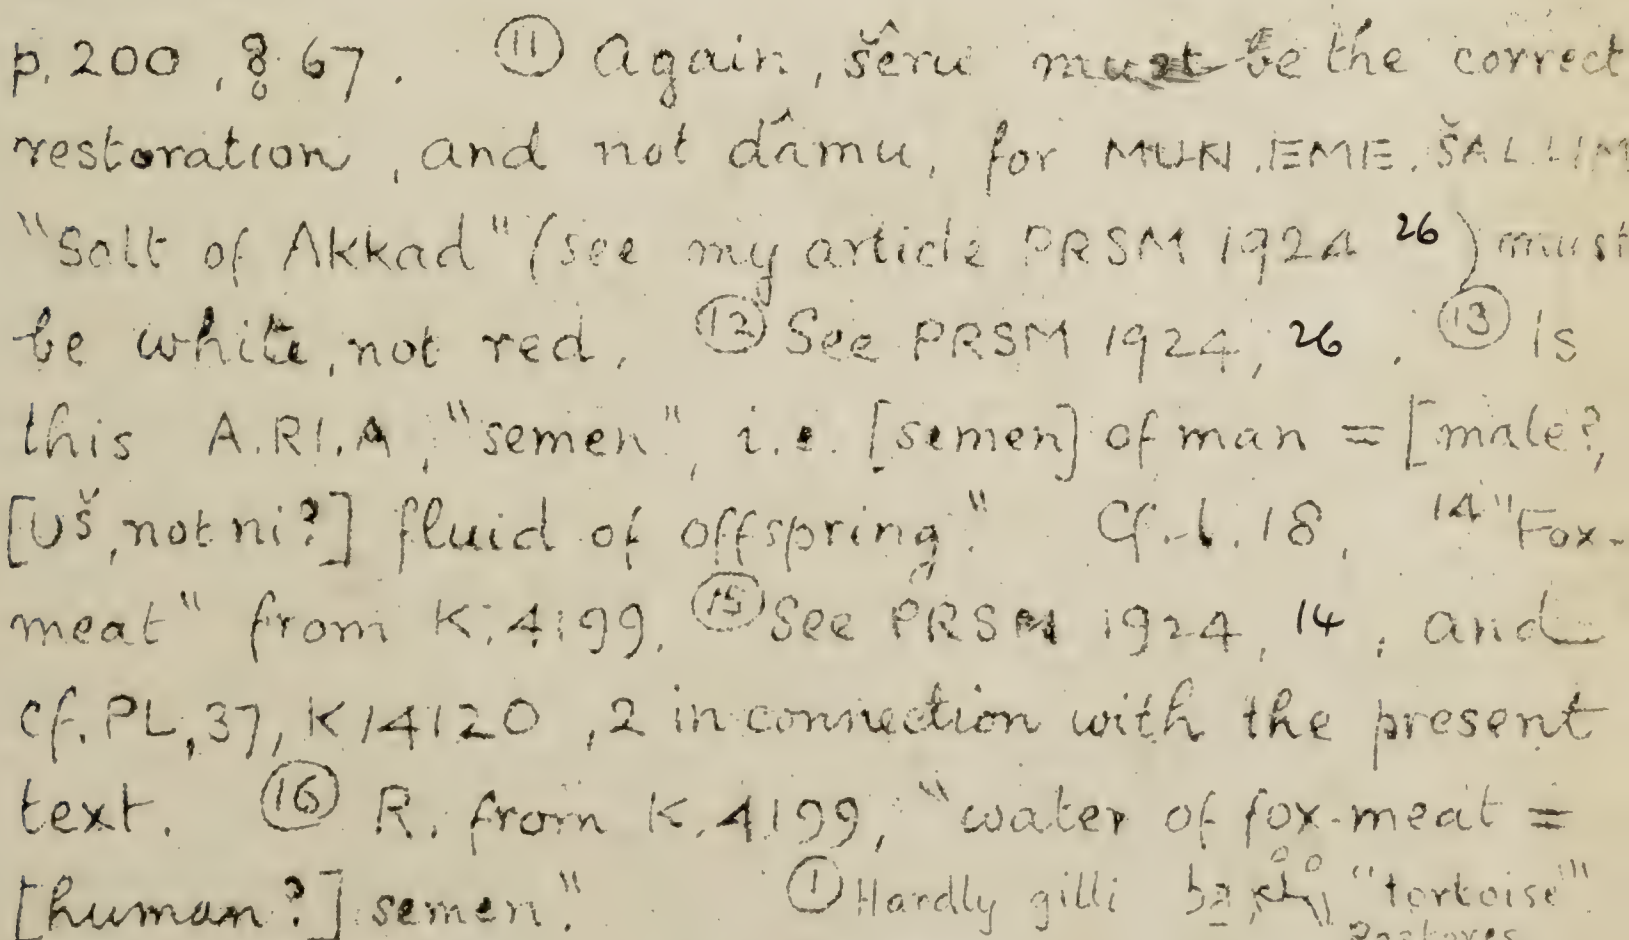 p. 200, § 67. ⑪ Again, šêru must be the correct
restoration, and not dâmu, for MUN.EME.ŠAL.LIM
"Salt of Akkad" (see my article PRSM 1924 26) must
be white, not red. ⑫ See PRSM 1924, 26. ⑬ Is
this A.RI.A, "semen", i.e. [semen] of man = [male?,
[UŠ, not ni?] fluid of offspring." Cf. l. 18. 14 "Fox-
meat" from K.4199. ⑮ See PRSM 1924, 14, and
cf. PL, 37, K 14120, 2 in connection with the present
text. ⑯ R. from K.4199, "water of fox-meat =
[human?] semen." ① Hardly gilli "tortoise"